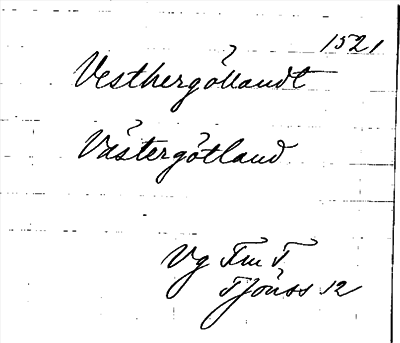 1521
Vesthergöllandt
Västergötland
Vg Fm F
Tjönss 12